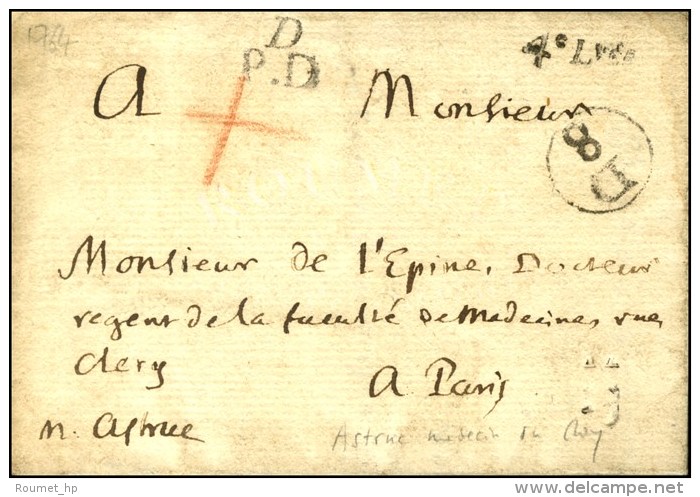 1764
D
P.D
4e Lvée
A Monsieur
8
D
Monsieur de l'Epine, Docteur
regent de la faculté de Medecine, rue
Clery
A Paris
n. Astruc
Astruc medecin du Roy
Roumet_hp
www.delcampe.net